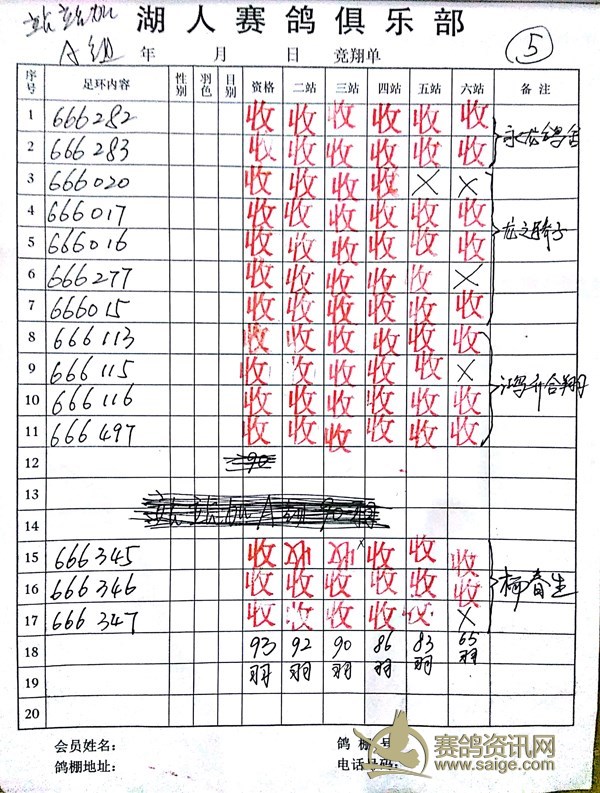 站站加 湖人赛鸽俱乐部
A组 年 月 日 竞翔单 ⑤
序号 足环内容 性别 羽色 目别 资格 二站 三站 四站 五站 六站 备注
1 666282 收 收 收 收 收 收
2 666283 收 收 收 收 收 收 永龙鸽舍
3 666020 收 收 收 收 × ×
4 666017 收 收 收 收 收 收
5 666016 收 收 收 收 收 收 龙之骄子
6 666277 收 收 收 收 收 ×
7 666015 收 收 收 收 收 收
8 666113 收 收 收 收 收 收
9 666115 收 收 收 收 收 ×
10 666116 收 收 收 收 收 收
11 666497 收 收 收 收 收 收
12 90
13
14
15 666345 收 收 收 × 收 收 收
16 666346 收 收 收 收 收 收 杨春生
17 666347 收 收 收 收 收 ×
18 93 92 90 86 83 65
羽 羽 羽 羽 羽 羽
19
20
会员姓名: 鸽棚号
鸽棚地址: 电话号码:
赛鸽资讯网
www.saige.com